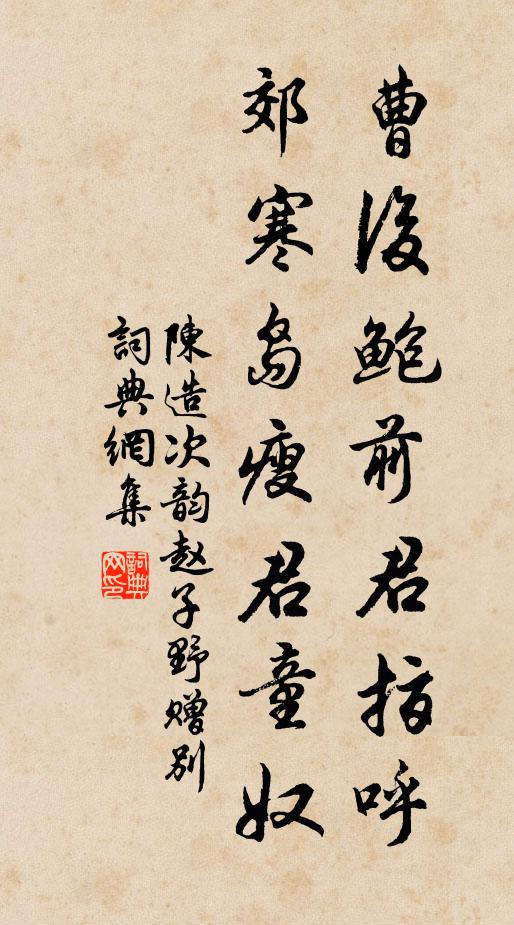 曹後鮑前君指呼
郊寒島瘦君童奴
陳造次韵赵子野赠别
詞典網集
詞典网印